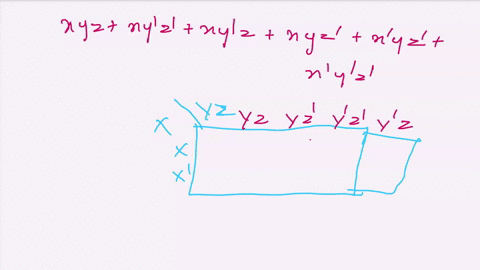 xyz + xy'z' + xy'z + xyz' + x'yz' +
x'y'z'
YZ
X YZ YZ' Y'Z' Y'Z
X
X'